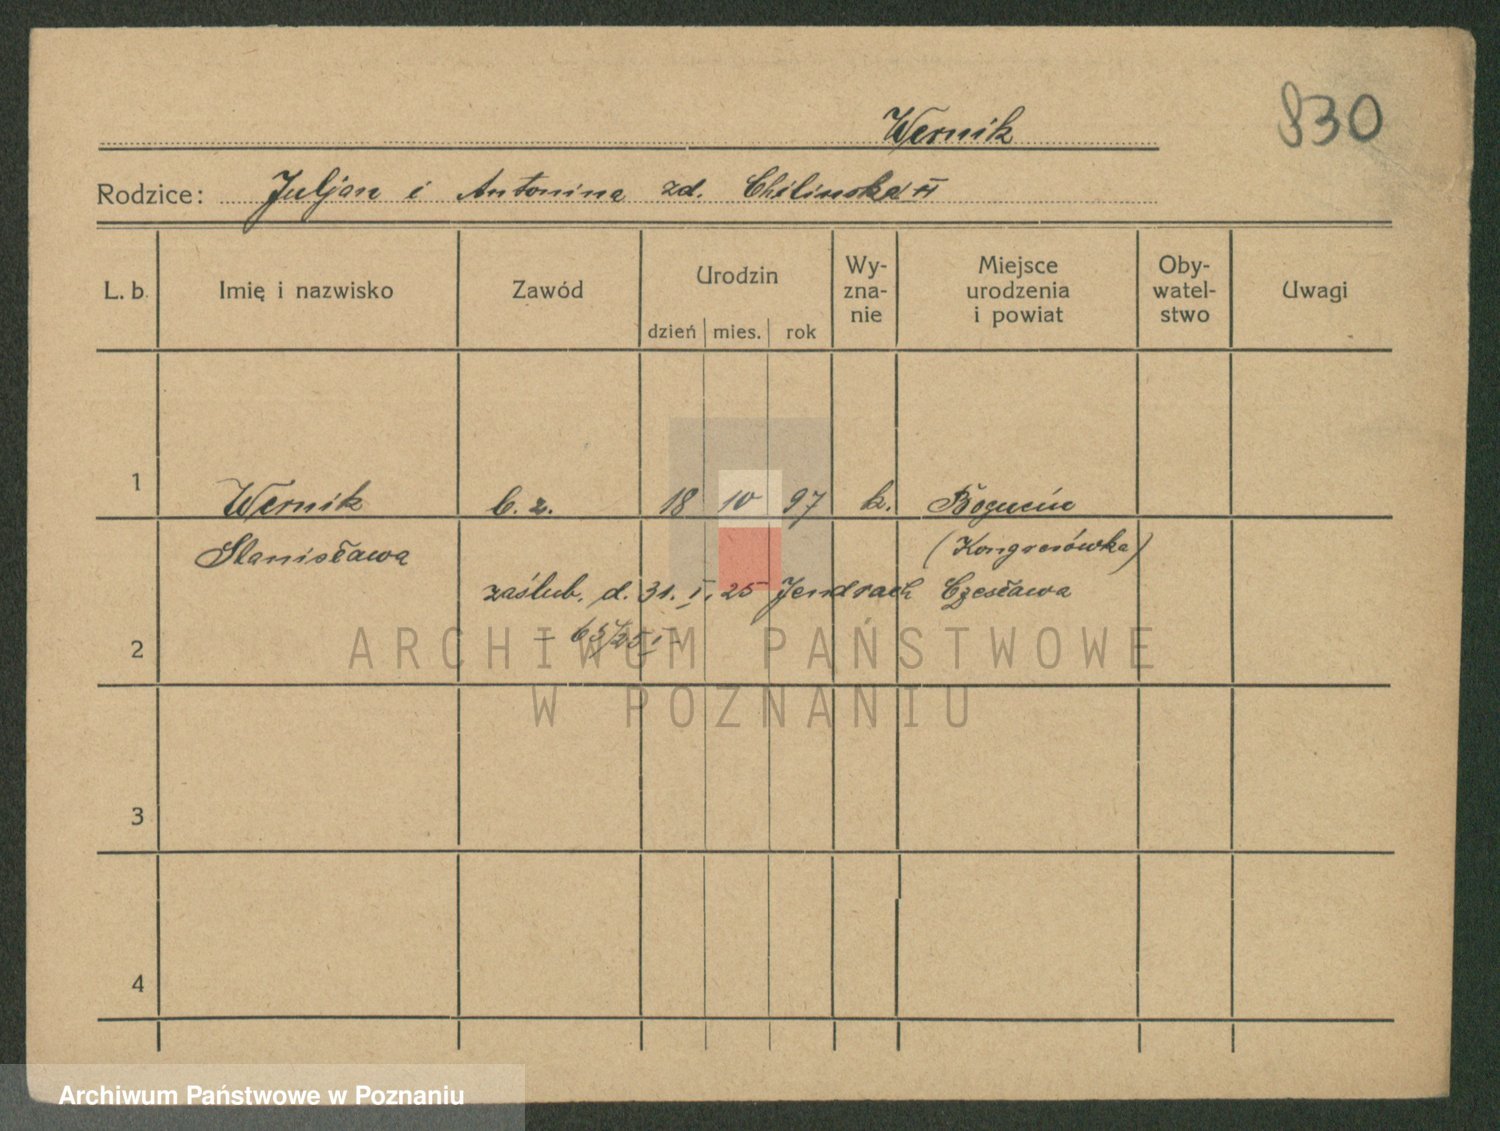 830
Wernik
Rodzice: Juljan i Antonina zd. Chilinska
L. b. Imię i nazwisko Zawód Urodzin Wy-zna-nie Miejsce urodzenia i powiat Oby-watel-stwo Uwagi
dzień mies. rok
1 Wernik b. z. 18 10 97 k.
Stanisława (Kongresówka)
zaślub. d. 31. I. 25 Jendrach Czesława
2 – 65/25 I –
3
4
ARCHIWUM PAŃSTWOWE
W POZNANIU
Archiwum Państwowe w Poznaniu